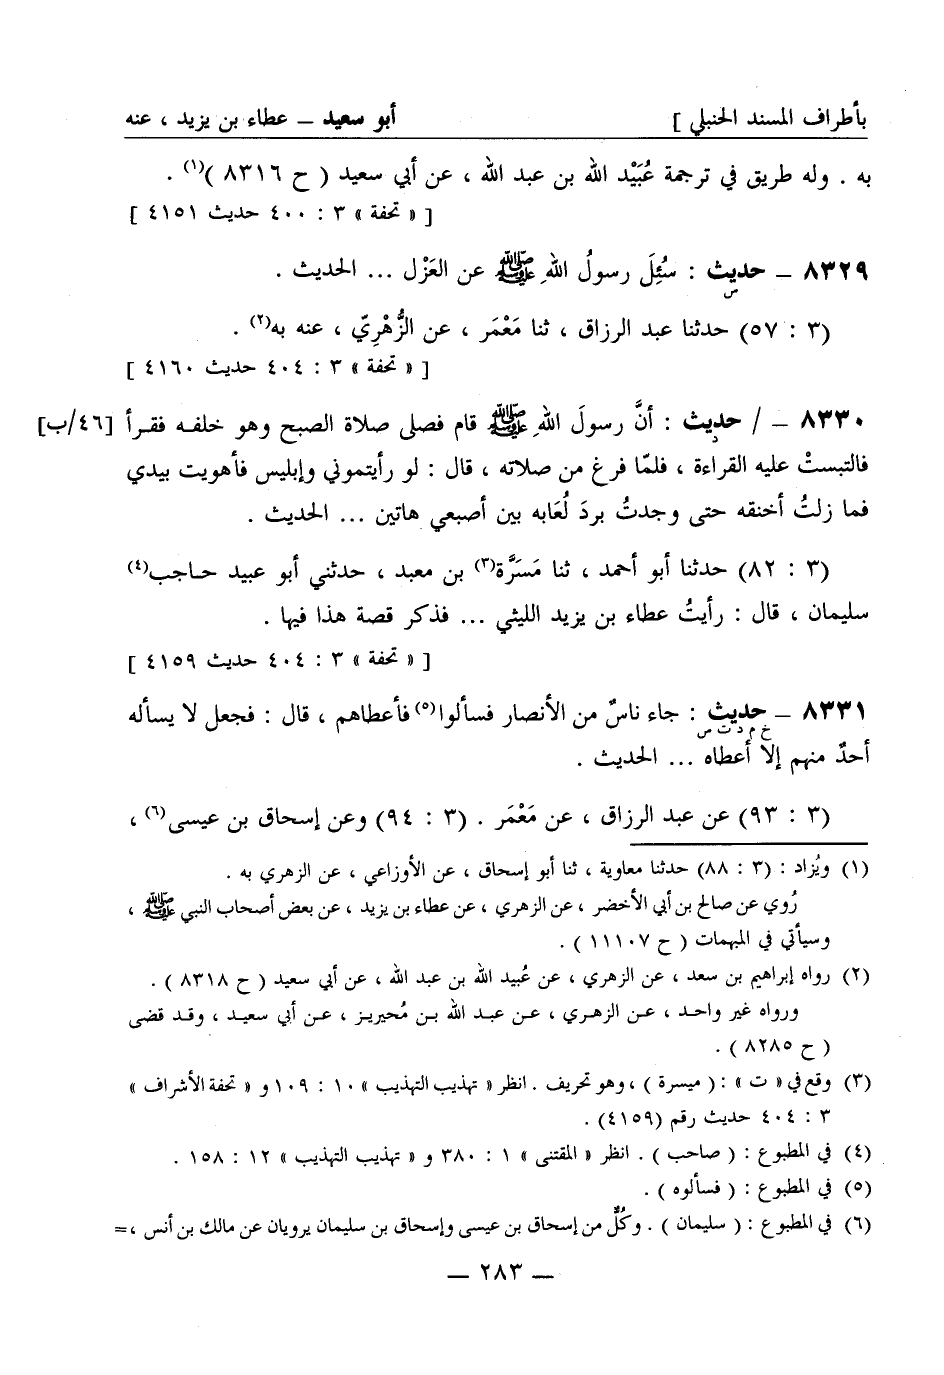 بأطراف المسند الحنبلي ] أبو سعيد – عطاء بن يزيد ، عنه
به . وله طريق في ترجمة عُبَيْد الله بن عبد الله ، عن أبي سعيد ( ح ٨٣١٦ )(١) .
[ « تحفة » ٣ : ٤٠٠ حديث ٤١٥١ ]
٨٣٢٩ – حديث : سُئِلَ رسولُ اللهِ ﷺ عن العَزْل ... الحديث .
س
(٣ : ٥٧) حدثنا عبد الرزاق ، ثنا مَعْمَر ، عن الزُّهْرِيّ ، عنه به(٢) .
[ « تحفة » ٣ : ٤٠٤ حديث ٤١٦٠ ]
٨٣٣٠ – / حديث : أنَّ رسولَ اللهِ ﷺ قام فصلى صلاة الصبح وهو خلفه فقرأ [٤٦/ب]
د
فالتبستْ عليه القراءة ، فلمّا فرغ من صلاته ، قال : لو رأيتموني وإبليس فأهويت بيدي
فما زلتُ أخنقه حتى وجدتُ بردَ لُعَابه بين أصبعي هاتين ... الحديث .
(٣ : ٨٢) حدثنا أبو أحمد ، ثنا مَسَرَّة(٣) بن معبد ، حدثني أبو عبيد حاجب(٤)
سليمان ، قال : رأيتُ عطاء بن يزيد الليثي ... فذكر قصة هذا فيها .
[ « تحفة » ٣ : ٤٠٤ حديث ٤١٥٩ ]
٨٣٣١ – حديث : جاء ناسٌ من الأنصار فسألوا(٥) فأعطاهم ، قال : فجعل لا يسأله
خ م د ت س
أحدٌ منهم إلا أعطاه ... الحديث .
(٣ : ٩٣) عن عبد الرزاق ، عن مَعْمَر . (٣ : ٩٤) وعن إسحاق بن عيسى(٦) ،
(١) ويُزاد : (٣ : ٨٨) حدثنا معاوية ، ثنا أبو إسحاق ، عن الأوزاعي ، عن الزهري به .
رُوي عن صالح بن أبي الأخضر ، عن الزهري ، عن عطاء بن يزيد ، عن بعض أصحاب النبي ﷺ ،
وسيأتي في المبهمات ( ح ١١١٠٧ ) .
(٢) رواه إبراهيم بن سعد ، عن الزهري ، عن عُبيد الله بن عبد الله ، عن أبي سعيد ( ح ٨٣١٨ ) .
ورواه غير واحد ، عن الزهري ، عن عبد الله بن مُحيريز ، عن أبي سعيد ، وقد قضى
( ح ٨٢٨٥ ) .
(٣) وقع في « ت » : ( ميسرة ) ، وهو تحريف . انظر « تهذيب التهذيب » ١٠ : ١٠٩ و « تحفة الأشراف »
٣ : ٤٠٤ حديث رقم (٤١٥٩) .
(٤) في المطبوع : ( صاحب ) . انظر « المقتنى » ١ : ٣٨٠ و « تهذيب التهذيب » ١٢ : ١٥٨ .
(٥) في المطبوع : ( فسألوه ) .
(٦) في المطبوع : ( سليمان ) . وكُلٌّ من إسحاق بن عيسى وإسحاق بن سليمان يرويان عن مالك بن أنس ، =
– ٢٨٣ –